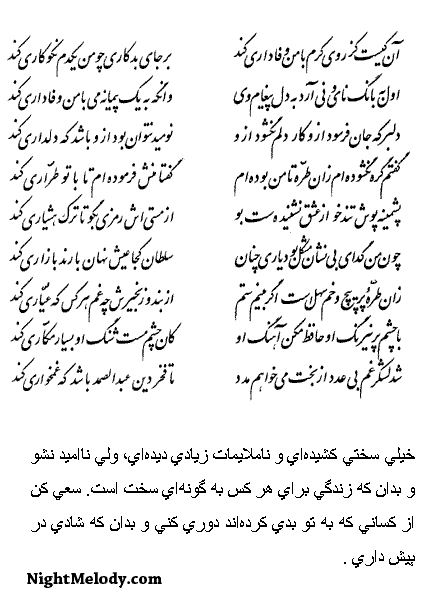 آن کیست کز روی کرم با من وفاداری کند بر جای بدکاری چو من یکدم نکوکاری کند
اول به بانگ نای و نی آرد به دل پیغام وی وانگه به یک پیمانه می با من وفاداری کند
دلبر که جان فرسود ازو کار دلم نگشود ازو نومید نتوان بود ازو باشد که دلداری کند
گفتم گره نگشوده‌ام زان طره تا من بوده‌ام گفتا منش فرموده‌ام تا با تو طراری کند
پشمینه پوش تندخو از عشق نشنیده است بو از مستی‌اش رمزی بگو تا ترک هشیاری کند
چون من گدای بی نشان مشکل بود یاری چنان سلطان کجا عیش نهان با رند بازاری کند
زان طره پر پیچ و خم سهل است اگر بینم ستم از بند و زنجیرش چه غم هر کس که عیاری کند
با چشم پر نیرنگ او حافظ مکن آهنگ او کان چشم مست شنگ او بسیار مکاری کند
شد لشکر غم بی عدد از بخت می‌خواهم مدد تا فخر دین عبدالصمد باشد که غمخواری کند
خيلي سختي كشيده‌اي و ناملايمات زيادي ديده‌اي، ولي نااميد نشو
و بدان كه زندگي براي هر كس به گونه‌اي سخت است. سعي كن
از كساني كه به تو بدي كرده‌اند دوري كني و بدان كه شادي در
پيش داري .
NightMelody.com